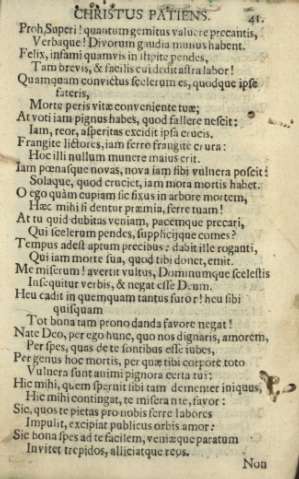 CHRISTUS PATIENS. 41.
Proh, Superi! quantum gemitus valuere precantis,
Verbaque! Divorum gaudia munus habent.
Felix, infami quamvis in stipite pendes,
Tam brevis, & facilis cui dedit astra labor!
Quamquam convictus scelerum es, quodque ipse
fateris,
Morte peris vitæ conveniente tuæ;
At voti iam pignus habes, quod fallere nescit:
Iam, reor, asperitas excidit ipsa crucis.
Frangite lictores, iam ferro frangite crura:
Hoc illi nullum munere maius erit.
Iam pœnasque novas, nova iam sibi vulnera poscit:
Solaque, quod cruciet, iam mora mortis habet.
O ego quàm cupiam sic fixus in arbore mortem,
Hæc mihi si dentur præmia, ferre tuam!
At tu quid dubitas veniam, pacemque precari,
Qui scelerum pendes, supplicijque comes?
Tempus adest aptum precibus: dabit ille roganti,
Qui iam morte sua, quod tibi donet, emit.
Me miserum! avertit vultus, Dominumque scelestis
Insequitur verbis, & negat esse Deum.
Heu cadit in quemquam tantus furor! heu sibi
quisquam
Tot bona tam prono danda favore negat!
Nate Deo, per ego hunc, quo nos dignaris, amorem,
Per spes, quas de te sontibus esse iubes,
Per genus hoc mortis, per quæ tibi corpore toto
Vulnera sunt animi pignora certa tui:
Hic mihi, quem spernit tibi tam dementer iniquus,
Hic mihi contingat, te miserante, favor:
Sic, quos te pietas pro nobis ferre labores
Impulit, excipiat publicus orbis amor:
Sic bona spes ad te facilem, veniæque paratum
Invitet trepidos, alliciatque reos.
Non